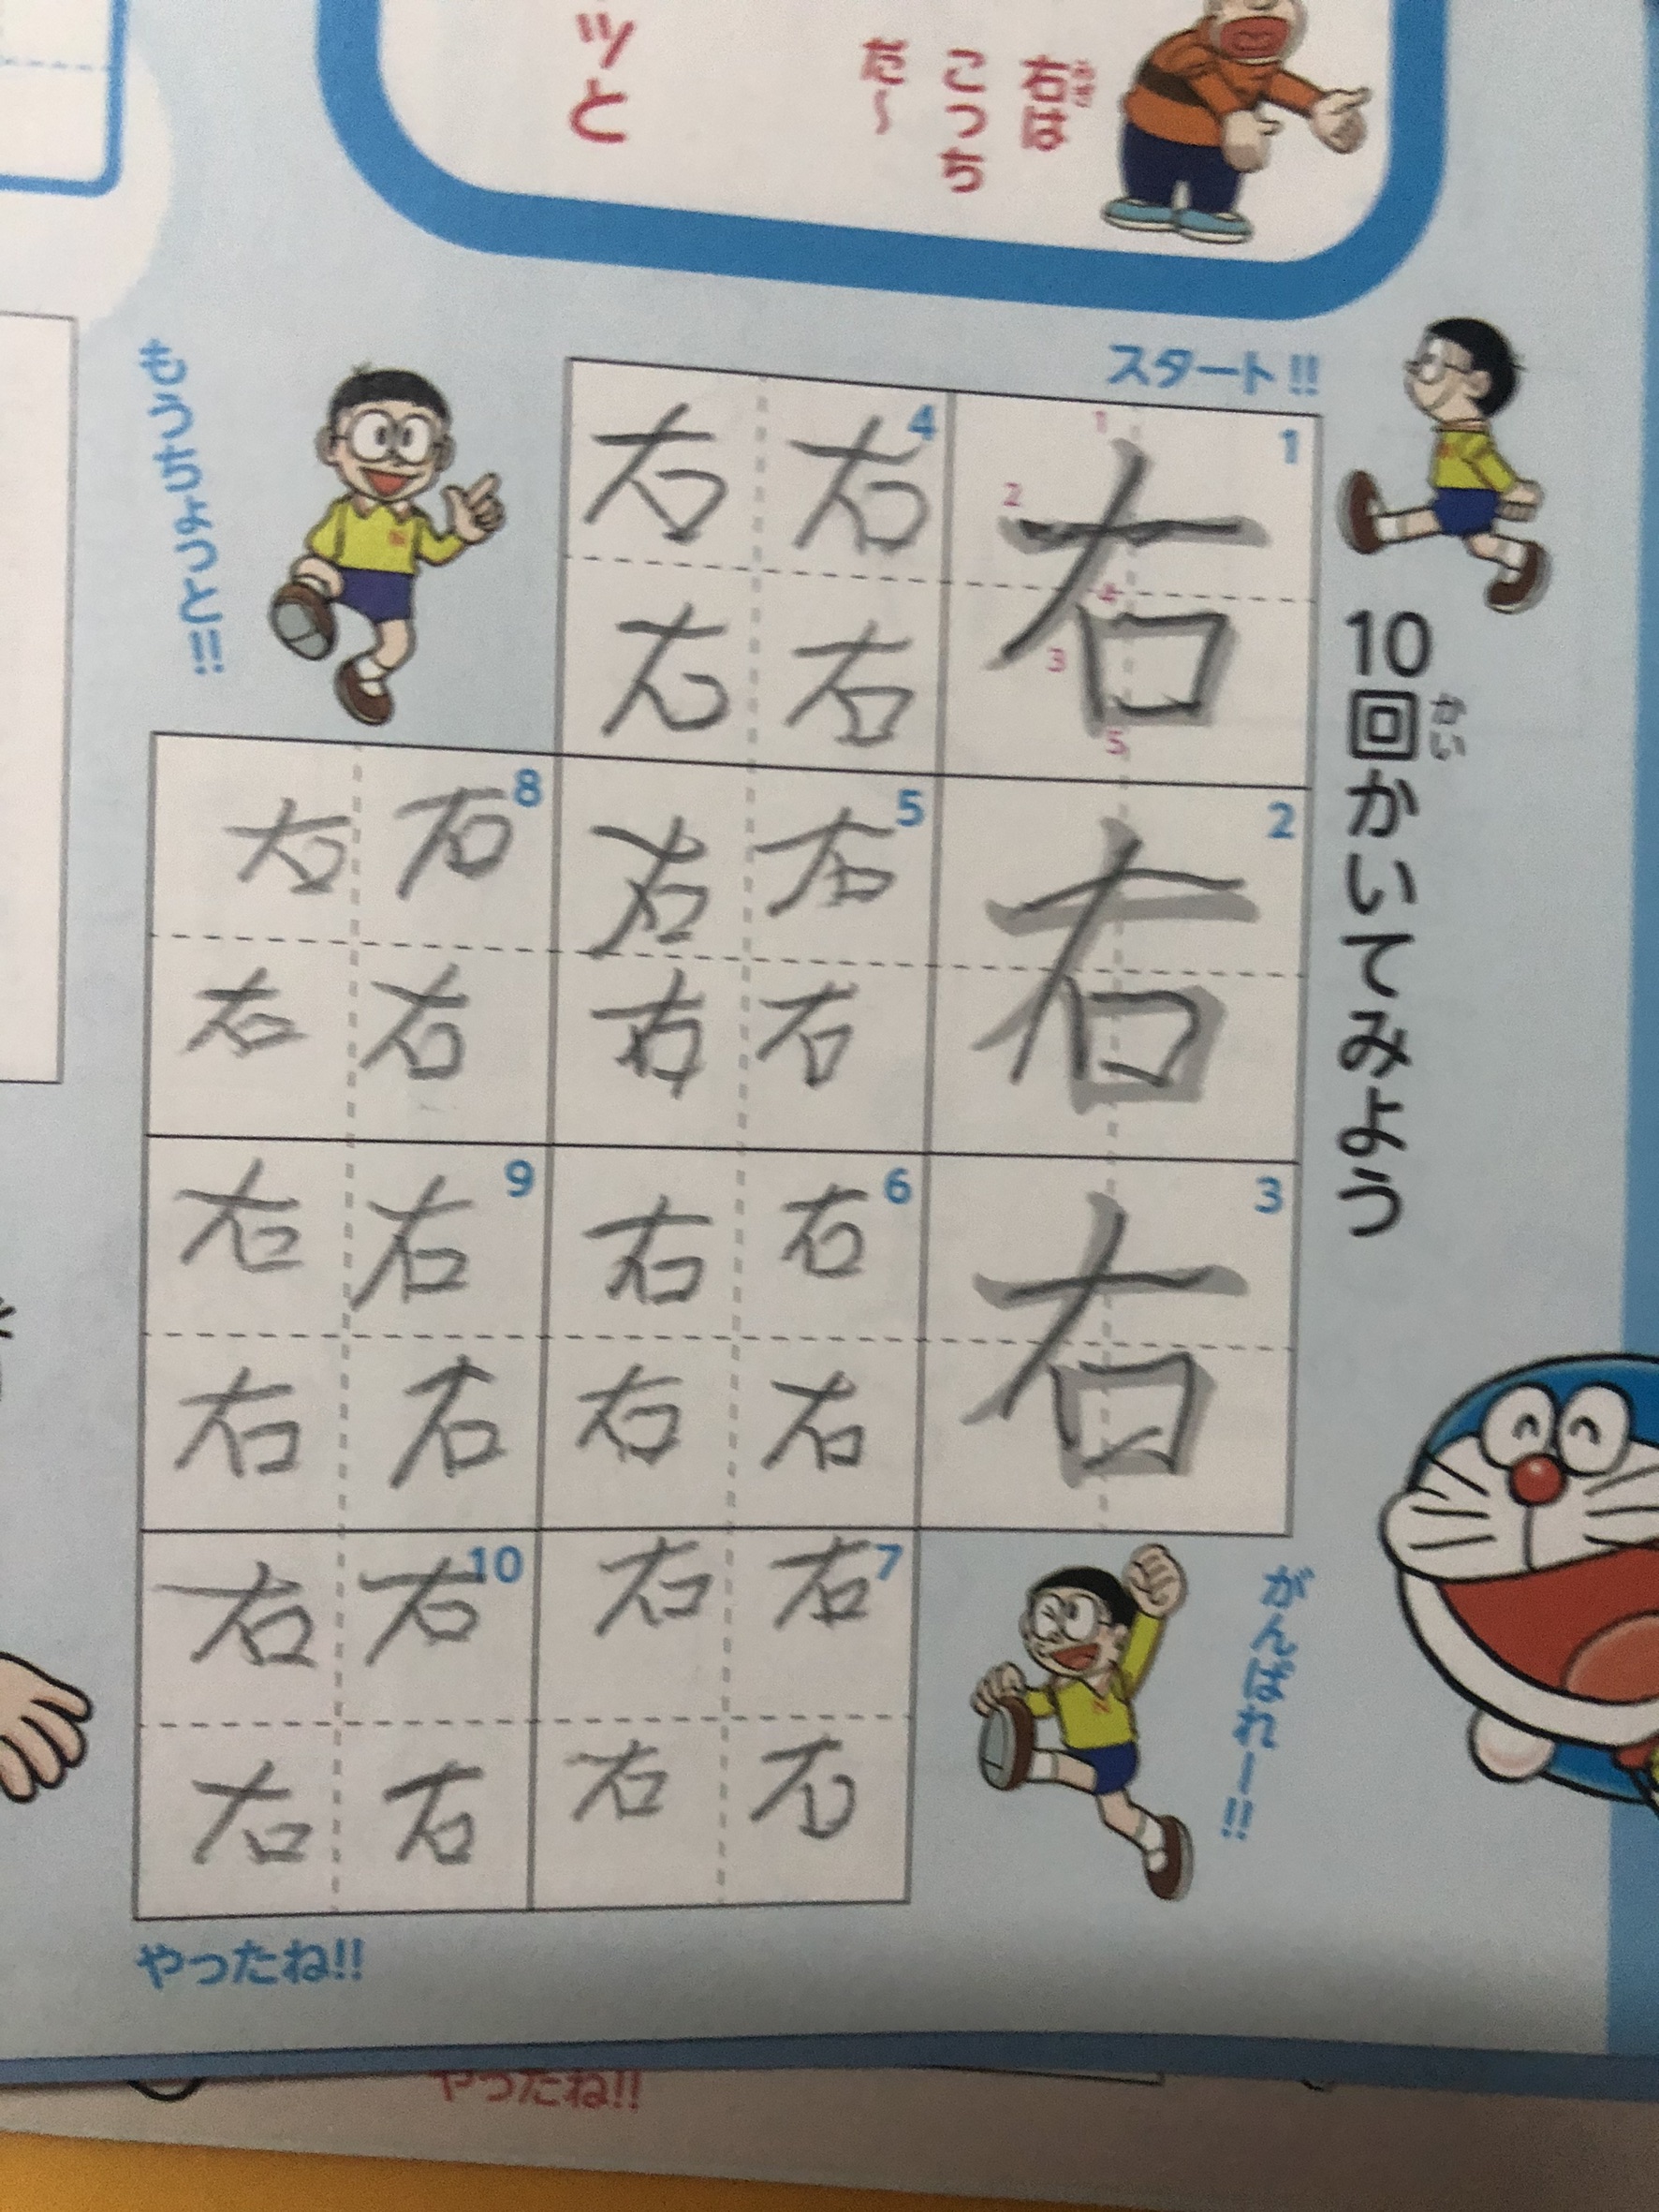 右は
みぎ
こっち
だ〜
ッと
スタート!!
10回かいてみよう
かい
1
右
1
2
3
4
5
2
右
3
右
がんばれー!!
4
右右
右右
5
右右
右右
6
右右
右右
7
右右
右右
もうちょっと!!!
8
右右
右右
9
右右
右右
10
右右
右右
やったね!!
やったね!!